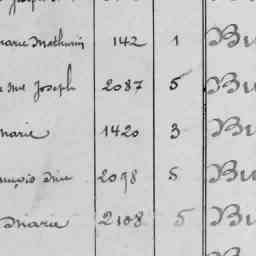 Marie Mathurin 142 1 Bu
Joseph 2087 5 Bu
Marie 1420 3 Bu
2098 5 Bu
Marie 2108 5 Bu